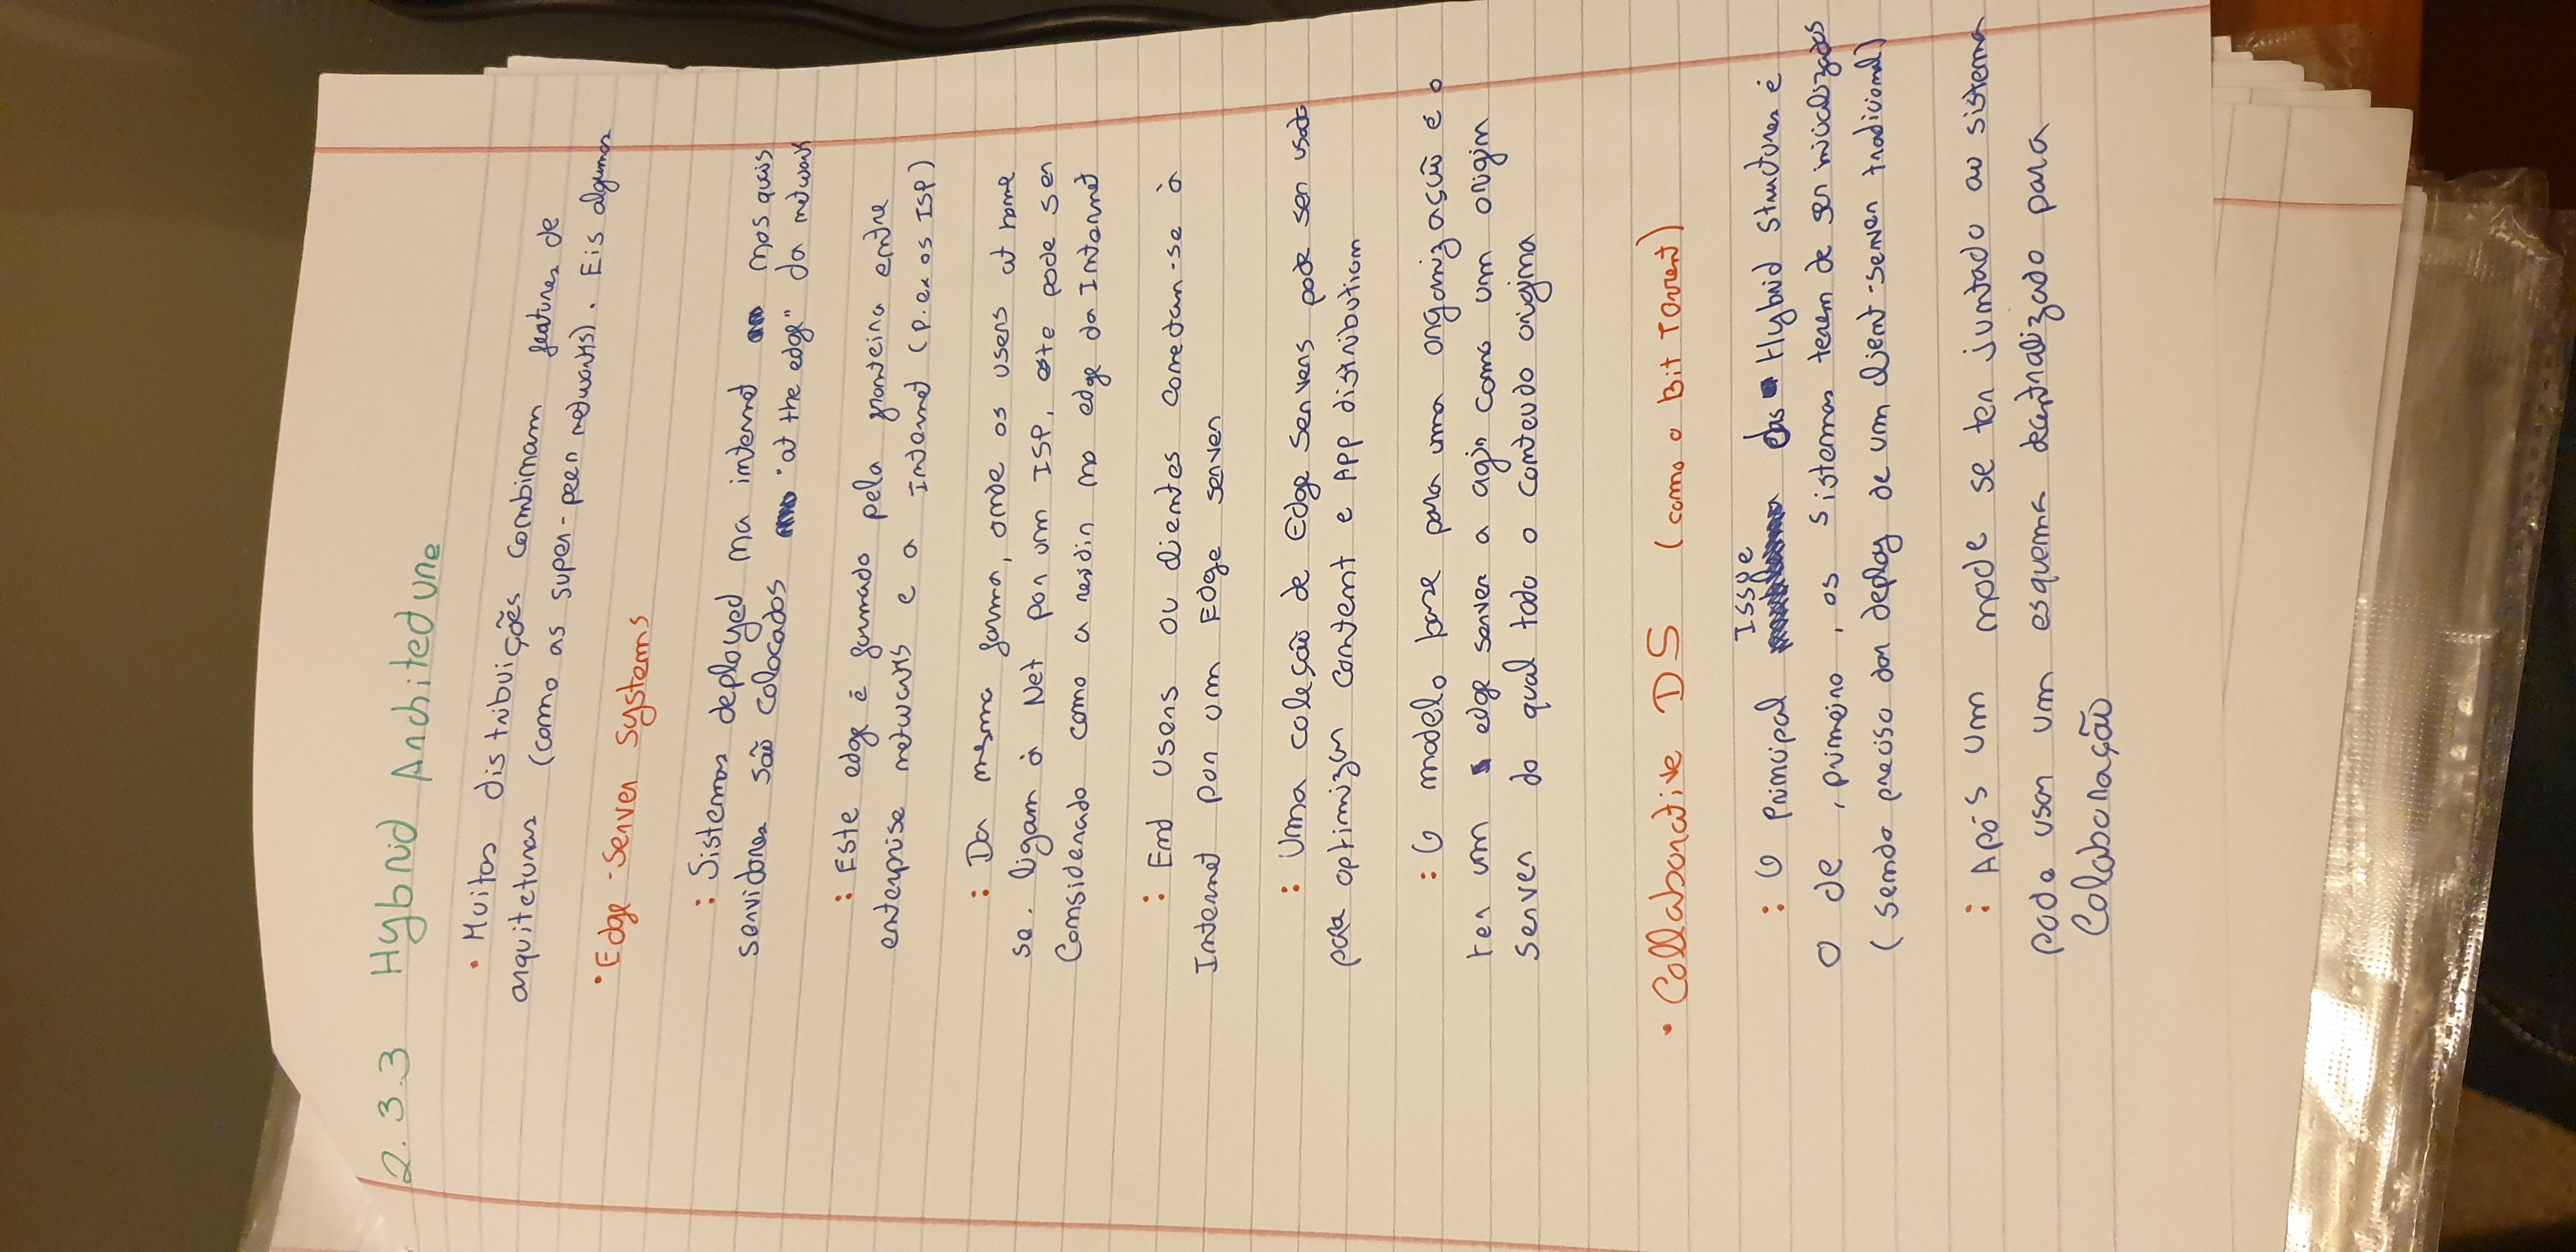 2.3.3 Hybrid Architecture
• Muitas distribuições combinam features de
arquiteturas (como as super-peer networks). Eis algumas
• Edge-Server Systems
: Sistemas deployed na internet nos quais
servidores são colocados "at the edge" da network
: Este edge é formado pela fronteira entre
enterprise networks e a Internet (p.ex os ISP)
: Da mesma forma, onde os users at home
se ligam à Net por um ISP, este pode ser
Considerado como a residir no edge da Internet
: End users ou clientes conectar-se à
Internet por um Edge server
: Uma coleção de Edge Servers pode ser usada
para optimizar content e App distribution
: O modelo base para uma organização é o
ter um edge server a agir como um origin
server do qual todo o conteudo origina
• Collaborative DS (como o Bit Torrent)
: O principal Issue das Hybrid Structures é
o de, primeiro, os sistemas terem de ser inicializados
(sendo preciso dar deploy de um client-server tradicional)
: Após um node se ter juntado ao sistema
pode usar um esquema decentralizado para
Colaboração